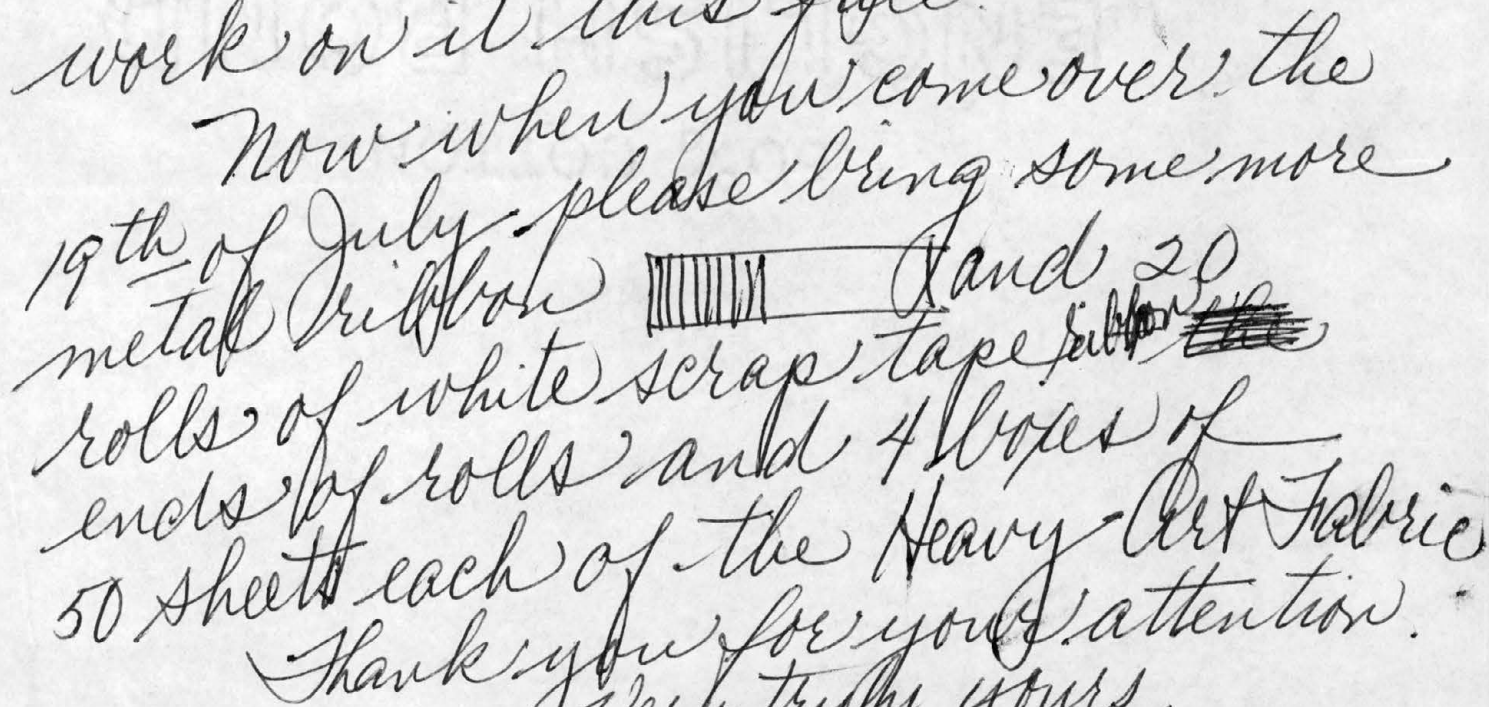 work on it this
Now when you come over the
19th of July please bring some more
metal ribbon and 20
rolls of white scrap tape ribbon
ends of rolls and 4 boxes of
50 sheets each of the Heavy Art Fabric
Thank you for your attention.
truly yours